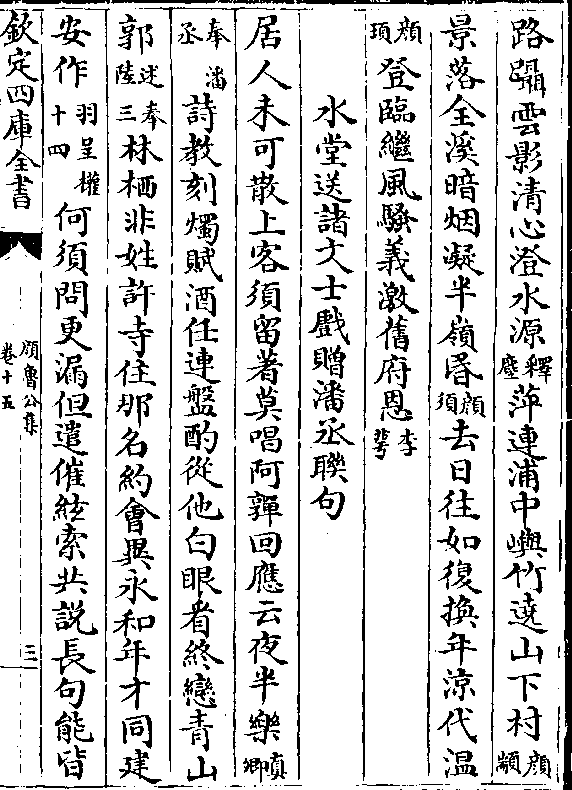 路躡雲影清心澄水源釋塵萍連浦中嶼竹遶山下村顔顓
景落全溪暗烟凝半嶺昏顔須去日往如復換年涼代温
顔頊登臨繼風騷義激舊府恩李萼
水堂送諸文士戲贈潘丞聯句
居人未可散上客須留著莫唱阿嚲回應云夜半樂真卿
奉潘丞詩教刻燭賦酒任連盤酌從他白眼看終戀青山
郭述奉陸三林栖非姓許寺住那名約會異永和年才同建
安作羽呈權十四何須問更漏但遣催絃索共説長句能皆
欽定四庫全書
顔魯公集
卷十五
三